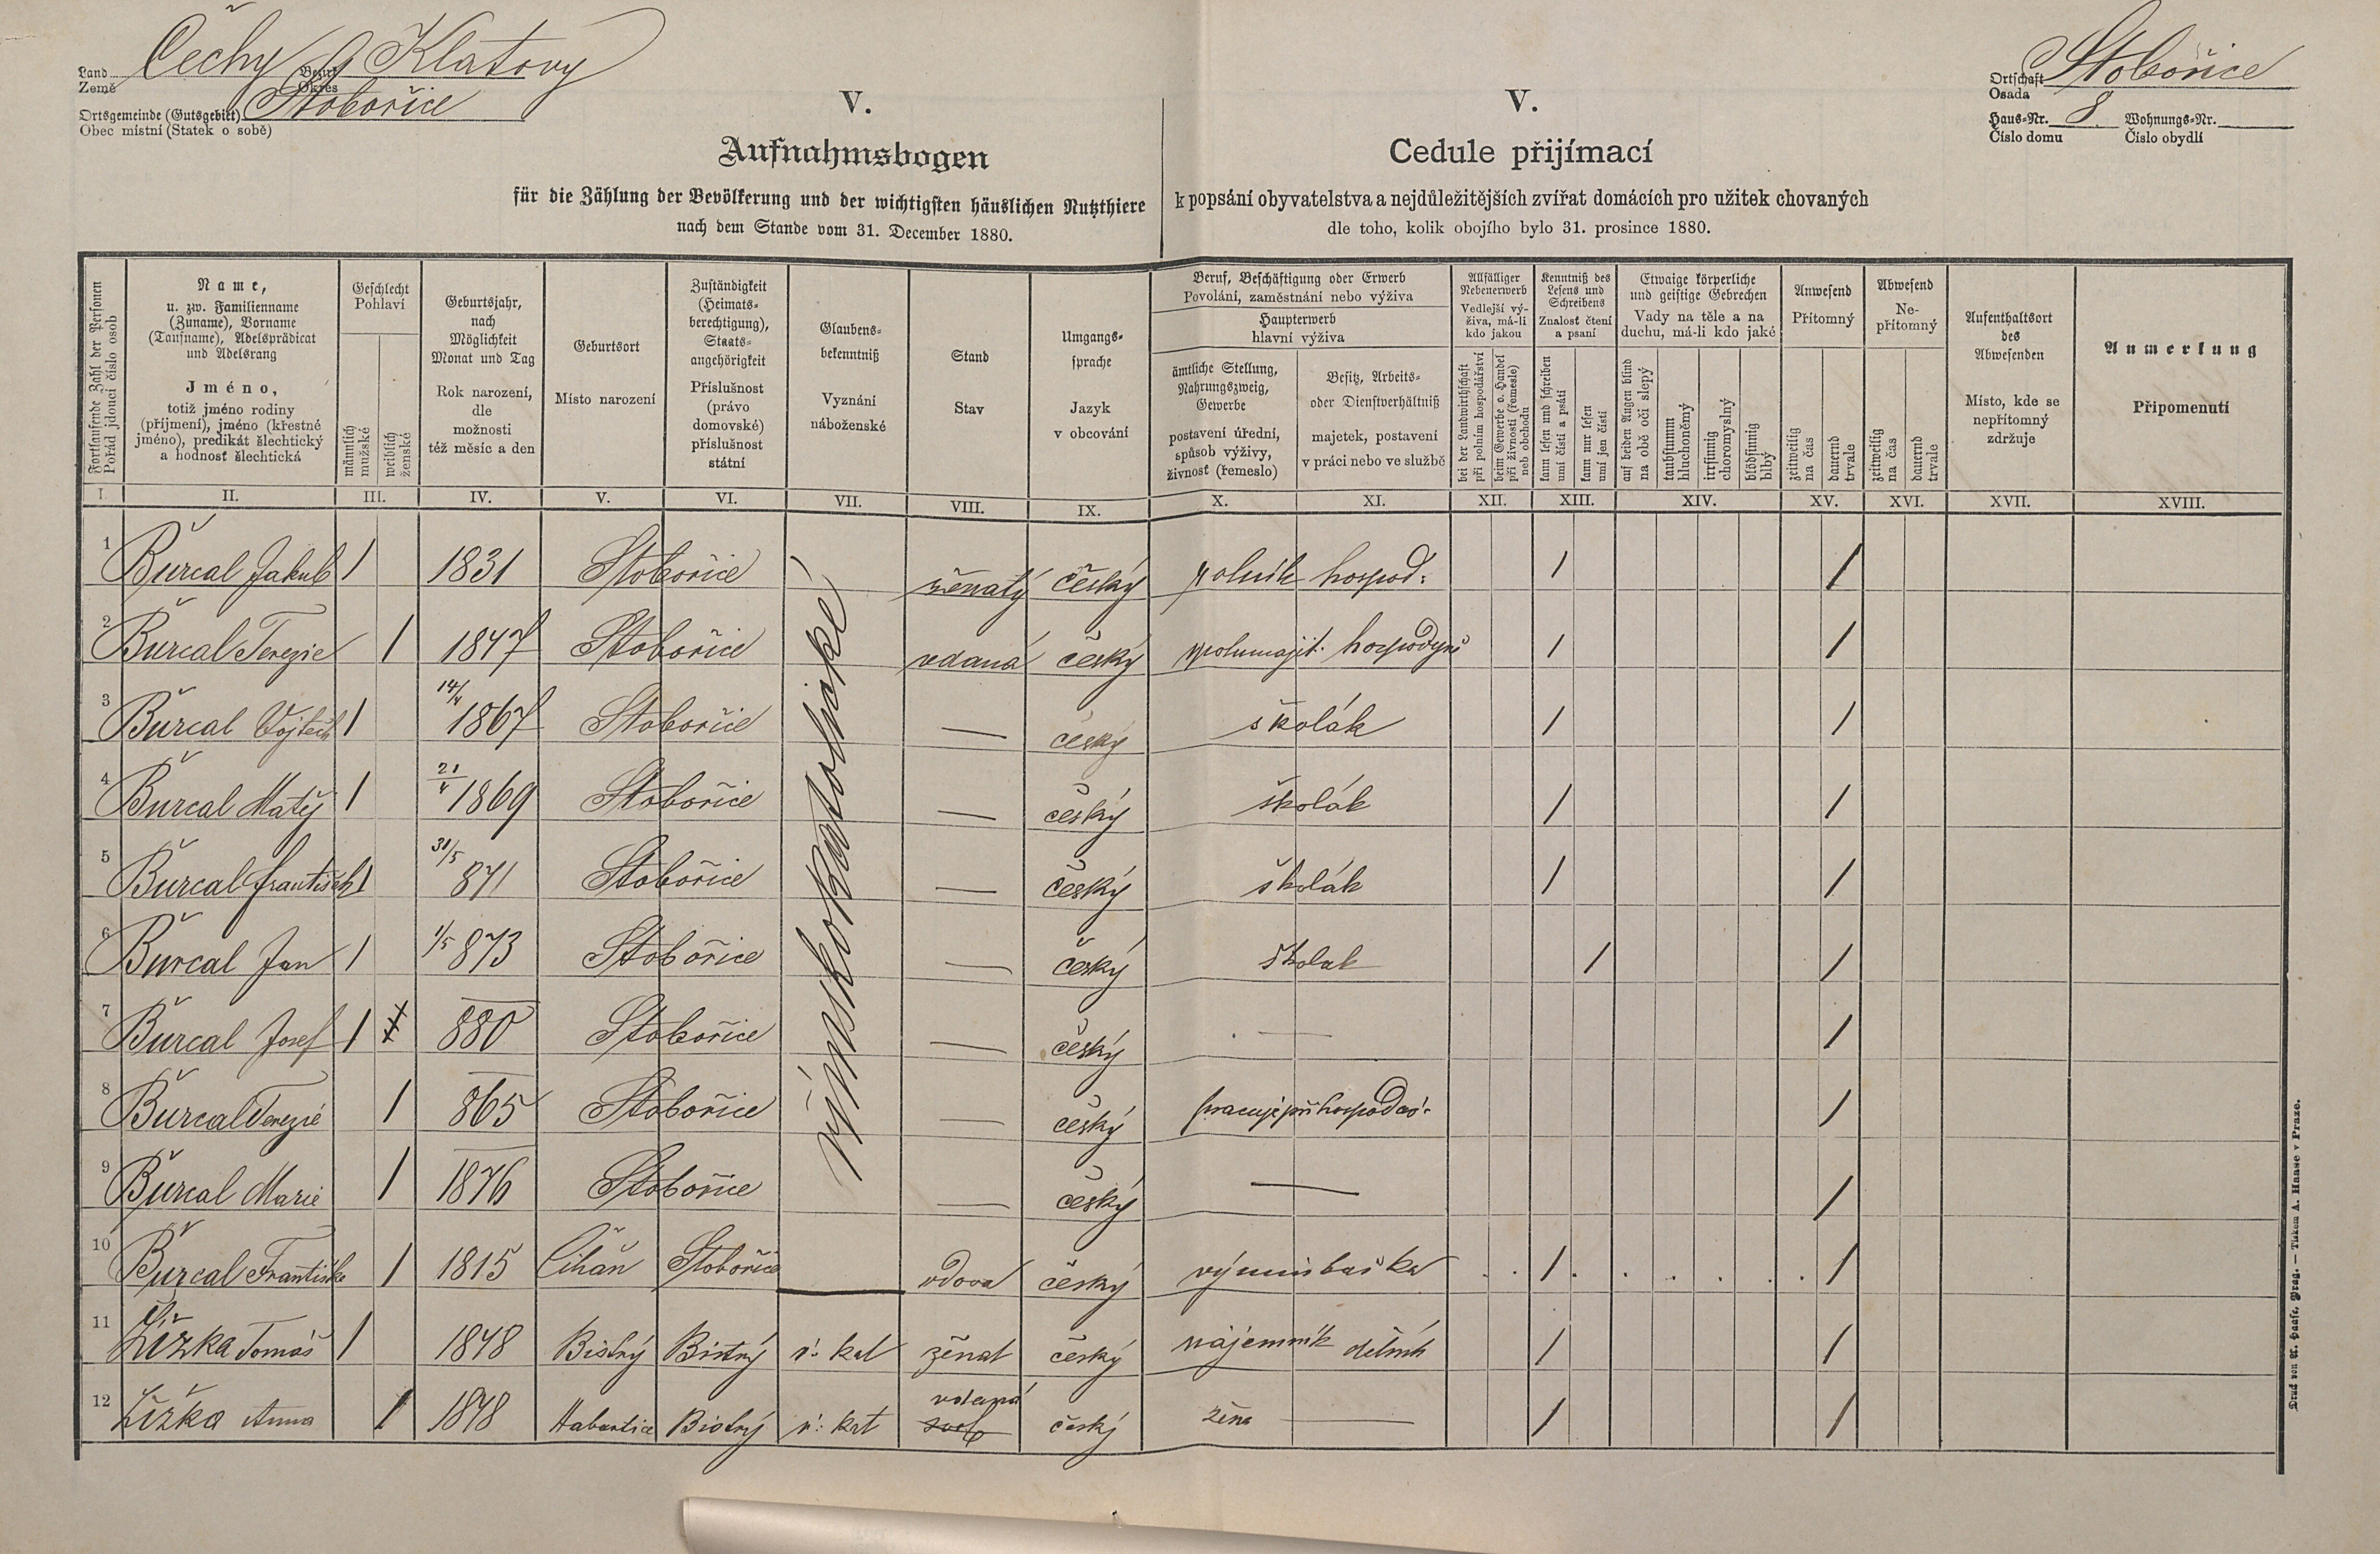 Land Čechy Bezirk Klatovy
Země Okres
Ortsgemeinde (Gutsgebiet) Stobořice
Obec místní (Statek o sobě)
Ortschaft Stobořice
Osada
Haus-Nr. 8 Wohnungs-Nr.
Číslo domu Číslo obydlí
V.
Aufnahmsbogen
für die Zählung der Bevölkerung und der wichtigsten häuslichen Nutzthiere
nach dem Stande vom 31. December 1880.
V.
Cedule přijímací
k popsání obyvatelstva a nejdůležitějších zvířat domácích pro užitek chovaných
dle toho, kolik obojího bylo 31. prosince 1880.
Fortlaufende Zahl der Personen
Pořád jdoucí číslo osob
Name,
u. zw. Familienname
(Zuname), Vorname
(Taufname), Adelsprädicat
und Adelsrang
Jméno,
totiž jméno rodiny
(příjmení), jméno (křestné
jméno), predikát šlechtický
a hodnosť šlechtická
Geschlecht
Pohlaví
männlich
mužské
weiblich
ženské
Geburtsjahr,
nach
Möglichkeit
Monat und Tag
Rok narození,
dle
možnosti
též měsíc a den
Geburtsort
Místo narození
Zuständigkeit
(Heimats-
berechtigung),
Staats-
angehörigkeit
Příslušnost
(právo
domovské)
příslušnost
státní
Glaubens-
bekenntniß
Vyznání
náboženské
Stand
Stav
Umgangs-
sprache
Jazyk
v obcování
Beruf, Beschäftigung oder Erwerb
Povolání, zaměstnání nebo výživa
Haupterwerb
hlavní výživa
ämtliche Stellung,
Nahrungszweig,
Gewerbe
postavení úřední,
spůsob výživy,
živnosť (řemeslo)
Besitz, Arbeits-
oder Dienstverhältniß
majetek, postavení
v práci nebo ve službě
Allfälliger
Nebenerwerb
Vedlejší vý-
živa, má-li
kdo jakou
bei der Landwirthschaft
při polním hospodářství
beim Gewerbe o. Handel
při živnosti (řemesle)
neb obchodu
Kenntniß des
Lesens und
Schreibens
Znalosť čtení
a psaní
kann lesen und schreiben
umí čísti a psáti
kann nur lesen
umí jen čísti
Etwaige körperliche
und geistige Gebrechen
Vady na těle a na
duchu, má-li kdo jaké
auf beiden Augen blind
na obě oči slepý
taubstumm
hluchoněmý
irrsinnig
choromyslný
blödsinnig
blbý
Anwesend
Přítomný
zeitweilig
na čas
dauernd
trvale
Abwesend
Ne-
přítomný
zeitweilig
na čas
dauernd
trvale
Aufenthaltsort
des
Abwesenden
Místo, kde se
nepřítomný
zdržuje
Anmerkung
Připomenutí
I. II. III. IV. V. VI. VII. VIII. IX. X. XI. XII. XIII. XIV. XV. XVI. XVII. XVIII.
římskokatolické
1 Buřcal Jakub 1 1831 Stobořice ženatý český rolník hospod: 1 1
2 Buřcal Terezie 1 1847 Stobořice vdaná český spolumajit. hospodyně 1 1
3 Buřcal Vojtěch 1 14/4 1867 Stobořice — český školák 1 1
4 Buřcal Matěj 1 21/4 1869 Stobořice — český školák 1 1
5 Buřcal František 1 31/5 871 Stobořice — český školák 1 1
6 Buřcal Jan 1 1/5 873 Stobořice — český školak 1 1
7 Buřcal Josef 1 880 Stobořice — český — 1
8 Buřcal Terezie 1 865 Stobořice — český pracuje při hospodář. 1
9 Buřcal Marie 1 1876 Stobořice — český — 1
10 Buřcal Františka 1 1815 Číhaň Stobořice vdova český výminkařka 1 1
11 Žižka Tomáš 1 1848 Bistrý Bistrý ř. kat ženat český nájemník dělník 1 1
12 Žižka Anna 1 1848 Habartice Bistrý ř: kat vdaná český žena — 1 1
Druck von A. Haase, Prag. — Tiskem A. Haase v Praze.